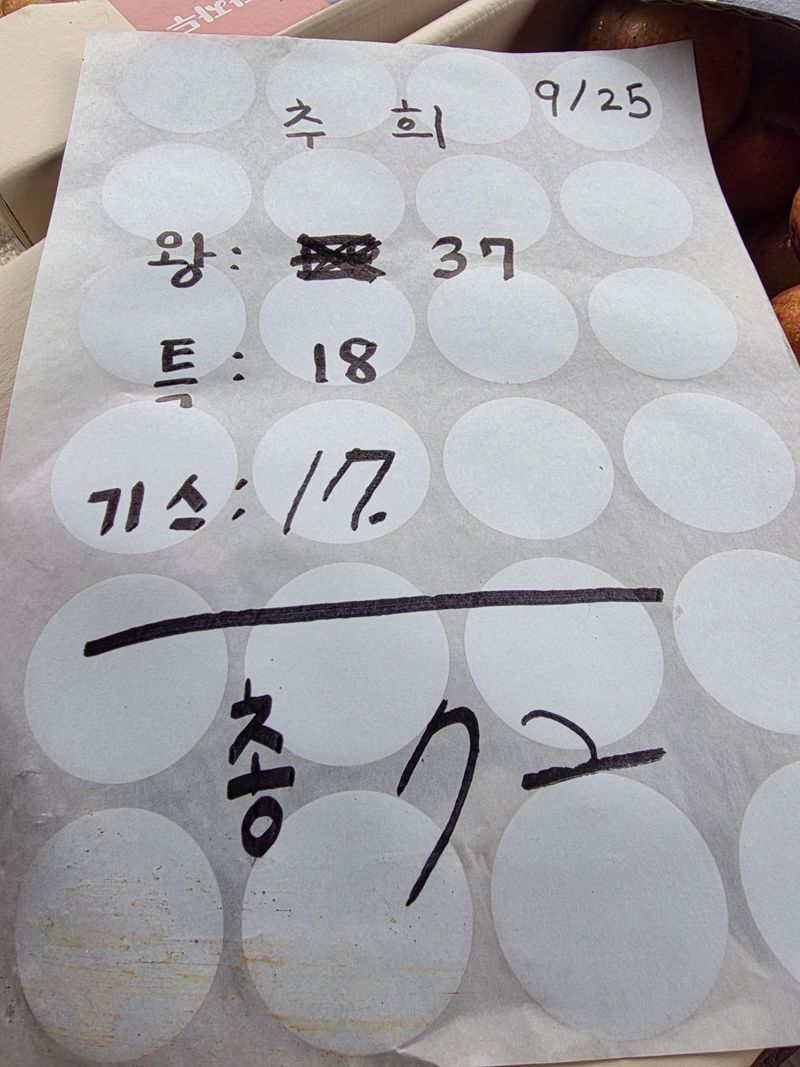 추희 9/25
왕: 37
특: 18
기스: 17.
총 72